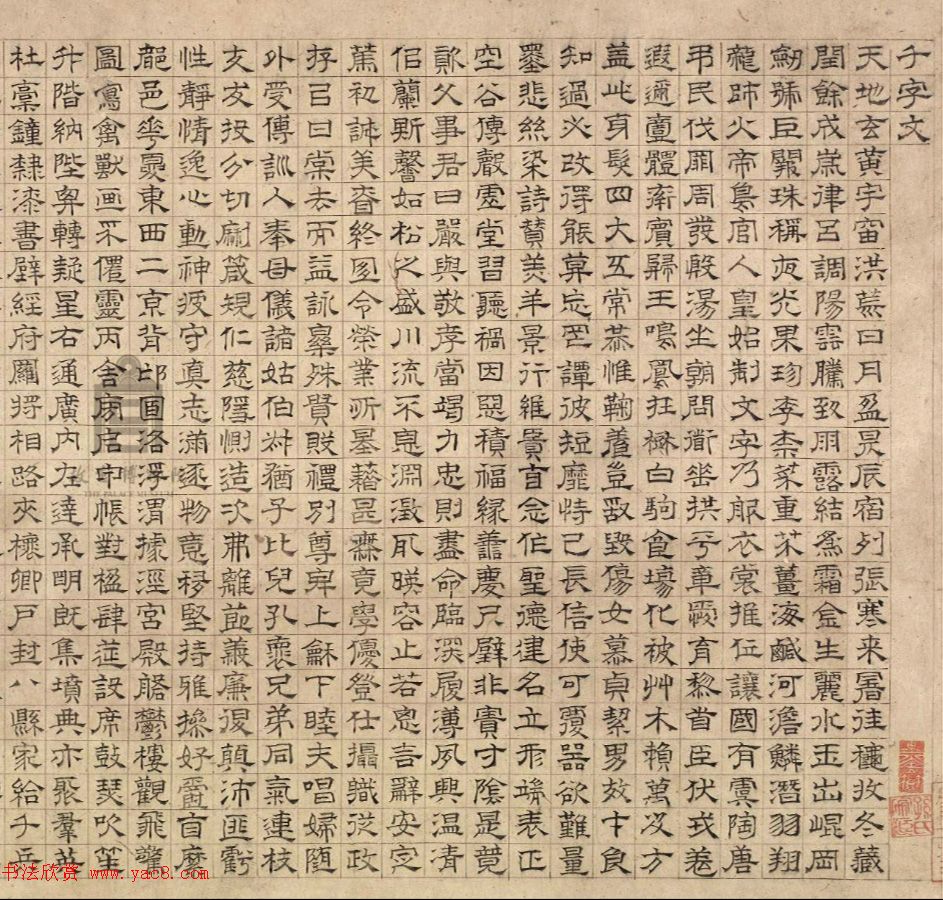 千字文
天地玄黃宇宙洪荒日月盈昃辰宿列張寒来暑往穐收冬藏
閏餘成歲律呂調陽雲騰致雨露結為霜金生麗水玉出崐岡
劒號巨闕珠稱夜光果珍李柰菜重芥薑海鹹河澹鱗潛羽翔
龍師火帝鳥官人皇始制文字乃服衣裳推位讓國有虞陶唐
弔民伐罪周發殷湯坐朝問道垂拱平章愛育黎首臣伏戎羌
遐邇壹體率賓歸王鳴鳳在樹白駒食場化被艸木賴萬及方
蓋此身髮四大五常恭惟鞠養豈敢毀傷女慕貞絜男效才良
知過必改得能莫忘罔譚彼短靡恃己長信使可覆器欲難量
墨悲絲染詩贊羔羊景行維賢克念作聖德建名立形端表正
空谷傳聲虛堂習聽禍因惡積福緣善慶尺璧非寶寸陰是競
資父事君曰嚴與敬孝當竭力忠則盡命臨深履薄夙興溫凊
侣蘭斯馨如松之盛川流不息淵澂取暎容止若思言辭安定
篤初誠美昚終宜令榮業所基藉甚無竟學優登仕攝職從政
存㠯甘棠去而益詠樂殊貴賤禮別尊卑上龢下睦夫唱婦随
外受傅訓入奉母儀諸姑伯叔猶子比兒孔懷兄弟同氣連枝
交友投分切磨箴規仁慈隱惻造次弗離節義廉退顛沛匪虧
性靜情逸心動神疲守真志滿逐物意移堅持雅操好爵自縻
都邑華夏東西二京背邙面洛浮渭據涇宮殿盤鬱樓觀飛驚
圖寫禽獸画采僊靈丙舍傍启甲帳對楹肆筵設席鼓瑟吹笙
升階納陛弁轉疑星右通廣内左達承明既集墳典亦聚羣英
杜稾鐘隸漆書壁經府羅將相路夾槐卿戶封八縣家給千兵
THE PALACE MUSEUM
书法欣赏 www.yac8.com